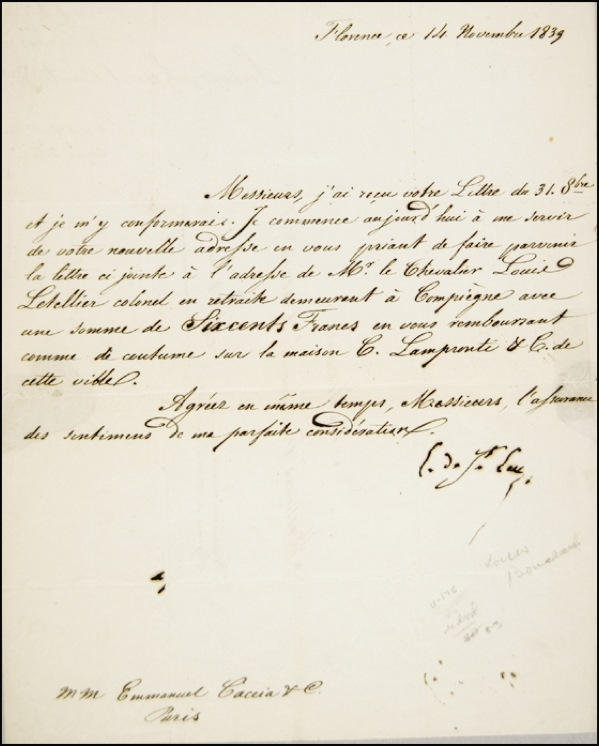 Florence, ce 14 Novembre 1839
Messieurs, j'ai reçu votre Lettre du 31. 8bre
et je m'y conformerais. Je commence aujourd'hui à me servir
de votre nouvelle adresse en vous priant de faire parvenir
la lettre ci junte à l'adresse de Mr. le Chevalier Louis
Letellier colonel en retraite demeurant à Compiègne avec
une somme de Sixcents Francs en vous remboursant
comme de coutume sur la maison C. Lampronti & C. de
cette ville.
Agréez en même temps, Messieurs, l'assurance
des sentimens de ma parfaite considération.
L. de St. Leu
Louis
MM Emmanuel Caccia & C.
Paris